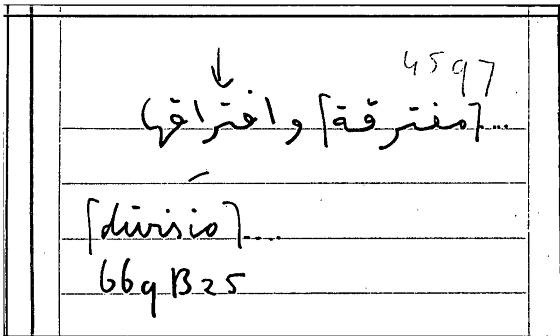 4597
...[مفترقة] و افتراقها
[divisio]....
669 B25